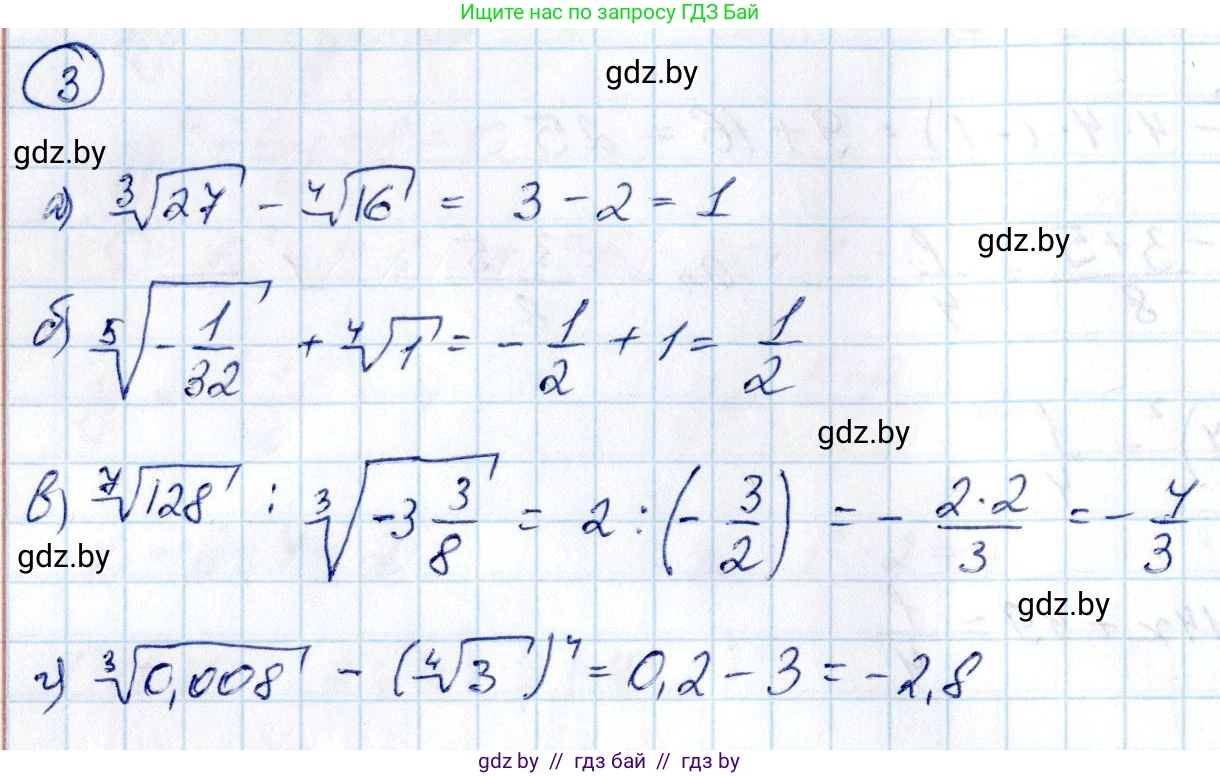 Ищите нас по запросу ГДЗ Бай
3
gdz.by
gdz.by
а) ∛27 - ∜16 = 3 - 2 = 1
gdz.by
б) ⁵√(-1/32) + ∜1 = - 1/2 + 1 = 1/2
gdz.by
в) ⁷√128 : ∛(-3 3/8) = 2 : (- 3/2) = - 2·2/3 = - 4/3
gdz.by
gdz.by
г) ∛0,008 - (∜3)⁴ = 0,2 - 3 = -2,8
gdz.by // гдз бай // gdz.by